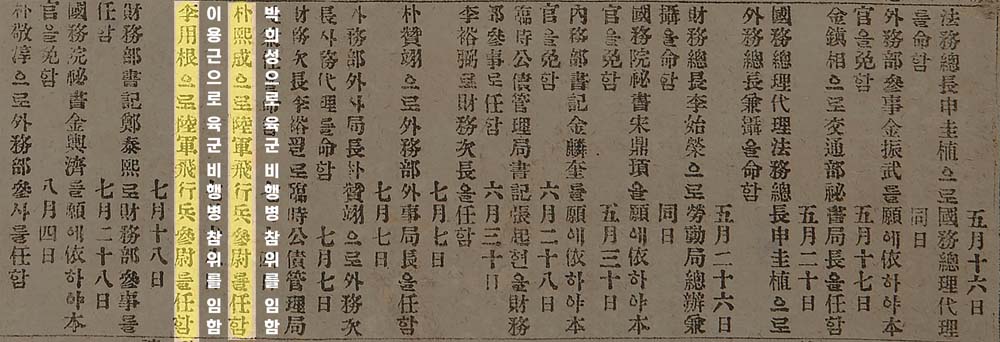 五月二十六日
法務總長申圭植으로國務總理代理
를命함 同日
外務部參事金振武를願에依하야本
官을免함 五月十七日
金鎭相으로交通部祕書局長을任함
五月二十日
國務總理代理法務總長申圭植으로
外務總長兼攝을命함
五月二十六日
財務總長李始榮으로勞働局總辦兼
攝을命함 同日
國務院祕書宋鼎頊을願에依하야本
官을免함 五月三十日
內務部書記金麟奎을願에依하야本
官을免함 六月二十八日
臨時公債管理局書記張起현을財務
部參事로任함 六月三十日
李裕弼로財務次長을任함
七月七日
朴贊翊으로外務部外事局長을任함
七月七日
外務部外事局長朴贊翊으로外務次
長事務代理를命함 七月七日
財務次長李裕弼로臨時公債管理局
박희성으로 육군 비행병 참위를 임함
朴熙成으로陸軍飛行兵參尉를任함
이용근으로 육군 비행병 참위를 임함
李用根으로陸軍飛行兵參尉를任함
七月十八日
財務部書記鄭泰熙로財務部參事를
任함 七月二十八日
國務院祕書金興濟를願에依하야本
官을免함 八月四日
朴敬淳으로外務部參사를任함